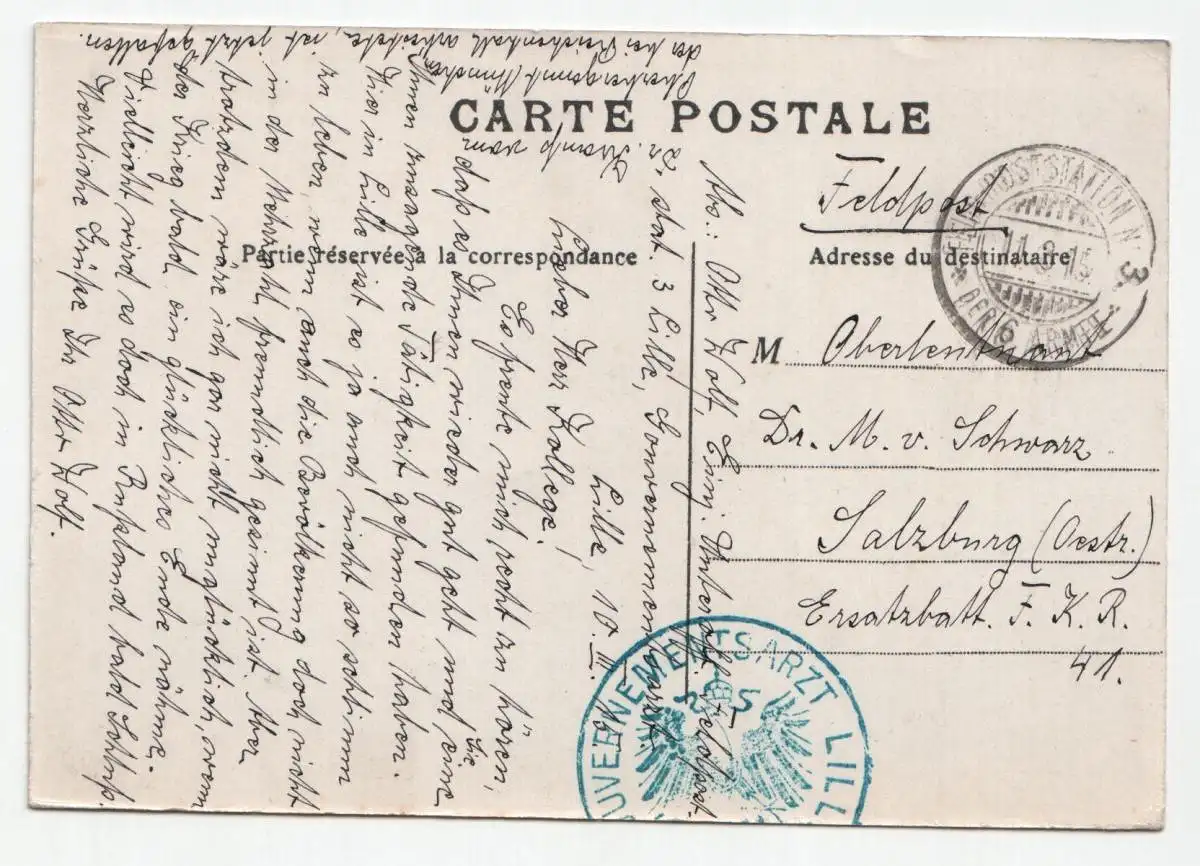 CARTE POSTALE
Partie réservée à la correspondance
Adresse du destinataire
Feldpost
POSTSTATION N° 3
11.3.15
DER 6. ARMEE
M Oberleutnant
Dr. M. v. Schwarz
Salzburg (Oestr.)
Ersatzbatt. F. K. R.
41.
Abs.: Otto Wolf, Einj. Unterarzt, Feldpost-
stat. 3 Lille, Gouvernementsarzt
Lille, 10. III. 15
Lieber Herr Kollege!
Es freute mich recht zu hören,
daß es Ihnen wieder gut geht und Sie eine
Ihnen zusagende Tätigkeit gefunden haben.
Hier in Lille ist es ja auch nicht so schlimm
zu leben, wenn auch die Bevölkerung doch nicht
in der Mehrzahl freundlich gesinnt ist. Aber
trotzdem wäre ich gar nicht unglücklich, wenn
der Krieg bald ein glückliches Ende nähme.
Vielleicht wird es doch in Rußland bald Schluß.
Herzliche Grüße Ihr Otto Wolf.
Dr. vom
Oberbergamt München,
der bei Reichenhall arbeitete, ist jetzt gefallen.
GOUVERNEMENTSARZT LILL